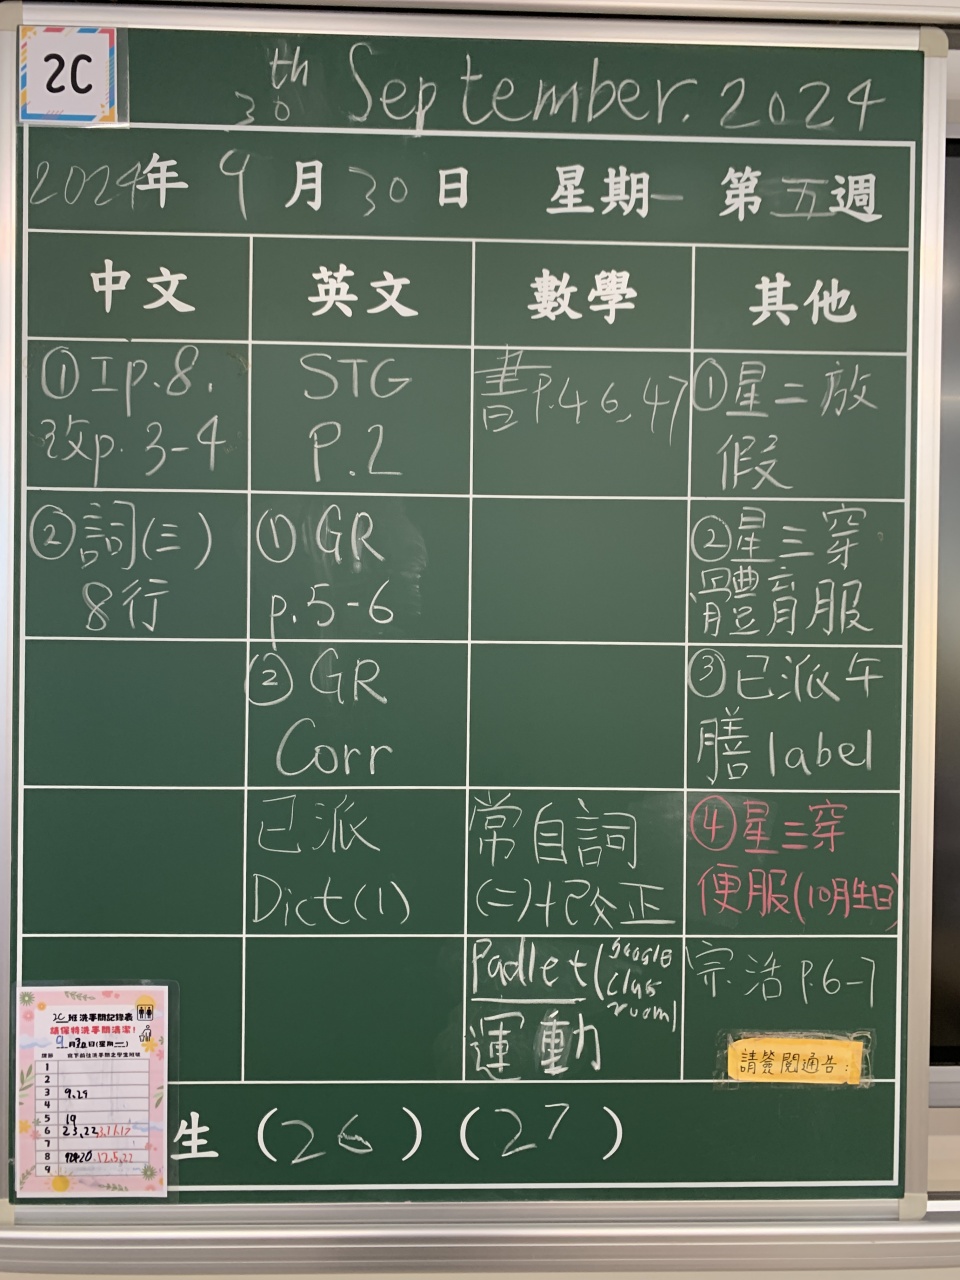 2C
30th September. 2024
2024年9月30日 星期一 第五週
中文 英文 數學 其他
①工p.8.
改p.3-4
STG
P.2
書P.46,47
①星二放
假
②詞(三)
8行
①GR
p.5-6
②星三穿
體育服
②GR
Corr
③已派午
膳label
已派
Dict(1)
常自詞
(二)+改正
④星三穿
便服(10月生日)
Padlet(Google
Class
room)
運動
宗.活P.6-7
請簽閱通告:
生(26)(27)
2C班洗手間記錄表
請保持洗手間清潔!
9月30日(星期一)
1
2
3 9,29
4
5 19
6 23,22
7
8
9